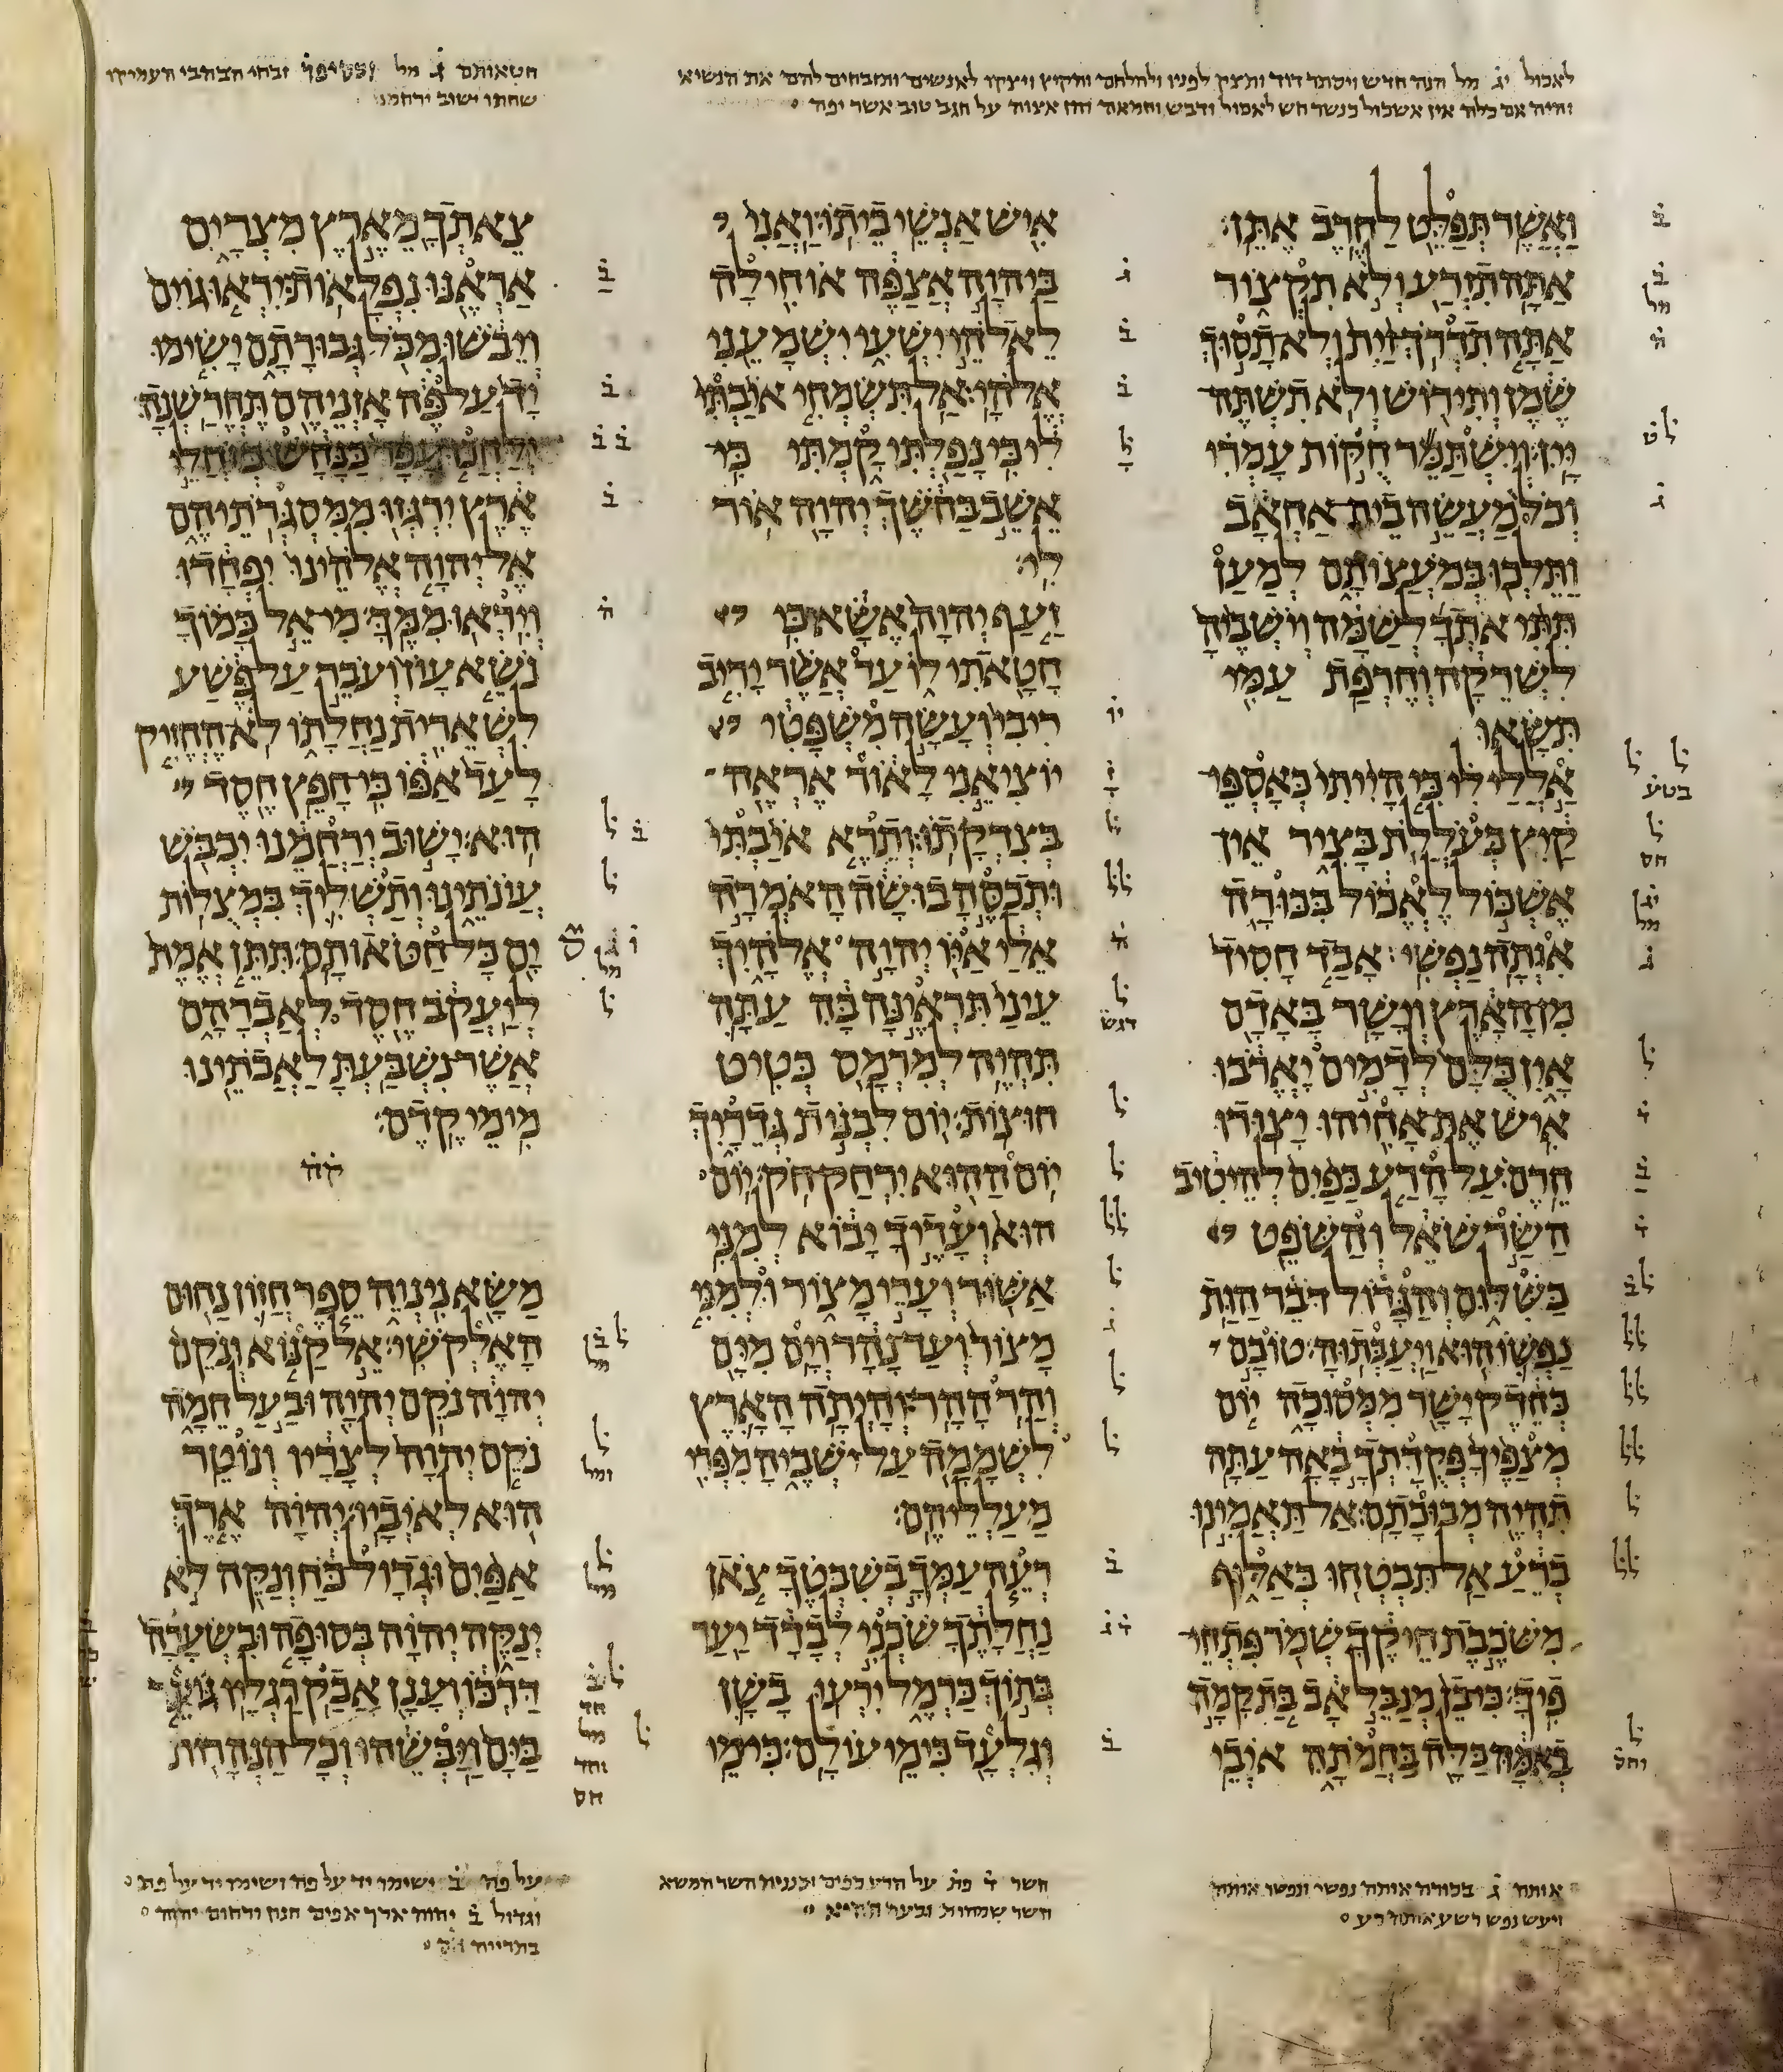 לאכול יג מל הנה חדש ויסתר דוד ותצק לפניו ולחלחם והקיץ ויצקו לאנשים ותזבחים להם את הנשיא
והיה אם כלה אין אשכול כנשר חש לאכול ודבש וחמאה וחז אצוה על חגב טוב אשר יפה
חטאותם ג מל זבחי הבהבי העמיקו
שחתו ישוב ירחמנו
ואשר תפלט לחרב אתן׃
אתה תזרע ולא תקצור
אתה תדרך זית ולא תסוך
שמן ותירוש ולא תשתה
יין׃ וישתמר חקות עמרי
וכל מעשה בית אחאב
ותלכו במעצותם למען
תתי אתך לשמה וישביה
לשרקה וחרפת עמי
תשאו׃
אללי לי כי הייתי כאספי
קיץ כעללת בציר אין
אשכול לאכול בכורה
אותה נפשי׃ אבד חסיד
מן הארץ וישר באדם
אין כלם לדמים יארבו
איש את אחיהו יצודו
חרם׃ על הרע כפים להיטיב
השר שאל והשפט
בשלום והגדול דבר הות
נפשו הוא ויעבתוה׃ טובם
כחדק ישר ממסוכה יום
מצפיך פקדתך באה עתה
תהיה מבוכתם׃ אל תאמינו
ברע אל תבטחו באלוף
משכבת חיקך שמר פתחי
פיך׃ כי בן מנבל אב בת קמה
באמה כלה בחמתה איבי
איש אנשי ביתו׃ ואני
ביהוה אצפה אוחילה
לאלהי ישעי ישמעני
אלהי׃ אל תשמחי איבתי
לי כי נפלתי קמתי כי
אשב בחשך יהוה אור
לי׃
זעף יהוה אשא כי
חטאתי לו עד אשר יריב
ריבי ועשה משפטי
יוציאני לאור אראה
בצדקתו׃ ותרא איבתי
ותכסה בושה האמרה
אלי איו יהוה אלהיך
עיני תראינה בה עתה
תהיה למרמס כטיט
חוצות׃ יום לבנות גדריך
יום ההוא ירחק חק׃ יום
הוא ועדיך יבוא למני
אשור וערי מצור ולמני
מצור ועד נהר וים מים
והר ההר׃ והיתה הארץ
לשממה על ישביה מפרי
מעלליהם׃
רעה עמך בשבטך צאן
נחלתך שכני לבדד יער
בתוך כרמל ירעו בשן
וגלעד כימי עולם׃ כימי
צאתך מארץ מצרים
אראנו נפלאות׃ יראו גוים
ויבשו מכל גבורתם ישימו
יד על פה אזניהם תחרשנה׃
ילחכו עפר כנחש כזחלי
ארץ ירגזו ממסגרתיהם
אל יהוה אלהינו יפחדו
ויראו ממך׃ מי אל כמוך
נשא עון ועבר על פשע
לשארית נחלתו לא החזיק
לעד אפו כי חפץ חסד
הוא׃ ישוב ירחמנו יכבש
עונתינו ותשליך במצלות
ים כל חטאותם׃ תתן אמת
ליעקב חסד לאברהם
אשר נשבעת לאבתינו
מימי קדם׃
קה
משא נינוה ספר חזון נחום
האלקשי׃ אל קנוא ונקם
יהוה נקם יהוה ובעל חמה
נקם יהוה לצריו ונוטר
הוא לאיביו׃ יהוה ארך
אפים וגדול כח ונקה לא
ינקה יהוה בסופה ובשערה
דרכו וענן אבק רגליו׃ גוער
בים ויבשהו וכל הנהרות
אותה ג בכורה אותה נפשי ונפשו אותה
ויעש נפש רשע אותה רע
השר ד פת על הרע כפים וכנניה השר המשא
השר שמחות ובער ההיא
על פה ב ישימו יד על פה ושימו יד על פה
וגדול ב יהוה ארך אפים חנון ורחום יהוה